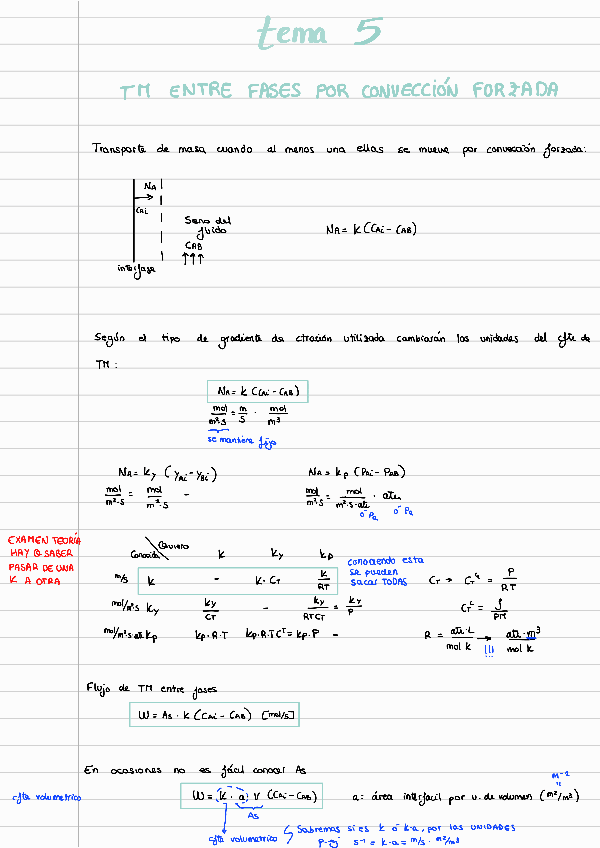 tema 5
TM ENTRE FASES POR CONVECCIÓN FORZADA
Transporte de masa cuando al menos una ellas se mueve por convección forzada:
NA
CAi
Seno del
fluido
CAB
↑↑↑
interfase
NA = K (CAi - CAB)
Según el tipo de gradiente de ctración utilizada cambiarán las unidades del cfte de
TM:
NA = K (CAi - CAB)
mol/m²·s = m/s · mol/m³
se mantiene fijo
NA = Ky (yAi - yBi)
mol/m²·s = mol/m²·s -
NA = Kp (PAi - PAB)
mol/m²·s = mol/m²·s·atm · atm
ó Pa ó Pa
EXAMEN TEORÍA
HAY Q SABER
PASAR DE UNA
K A OTRA
Quiero
Conocida
K Ky Kp
m/s K - K·CT K/RT
conociendo esta
se pueden
sacar TODAS
mol/m²s Ky Ky/CT - Ky/RTCT = Ky/P
mol/m²s·atm Kp Kp·R·T Kp·R·T·CT = Kp·P -
CT → CTG = P/RT
CTL = ρ/PM
R = atm·L/mol K → atm·m³/mol K
!!!
Flujo de TM entre fases
W = As · K (CAi - CAB) [mol/s]
En ocasiones no es fácil conocer As
cfte volumetrico
W = K · a V (CAi - CAB)
As
a: área interfacial por u. de volumen (m²/m³)
m-1
cfte volumetrico
Sabremos si es K ó K·a, por las UNIDADES
p·ej s-1 = K·a = m/s · m²/m³